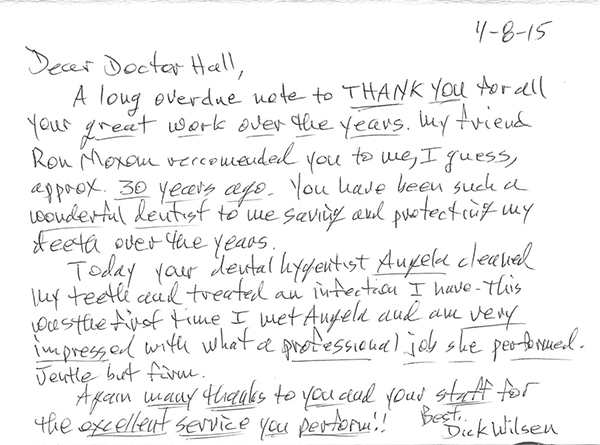 4-8-15
Dear Doctor Hall,
A long overdue note to THANK YOU for all
your great work over the years. My friend
Ron Moxom reccomended you to me, I guess,
approx. 30 years ago. You have been such a
wonderful dentist to me saving and protecting my
teeth over the years.
Today your dental hygentist Angela cleaned
my teeth and treated an infection I have. This
was the first time I met Angela and am very
impressed with what a professional job she performed.
Jentle but firm.
Again many thanks to you and your staff for
the excellent service you perform!!
Best..
Dick Wilsen